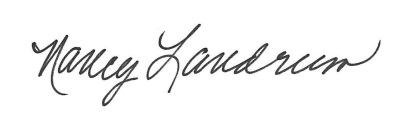 Nancy Landrum